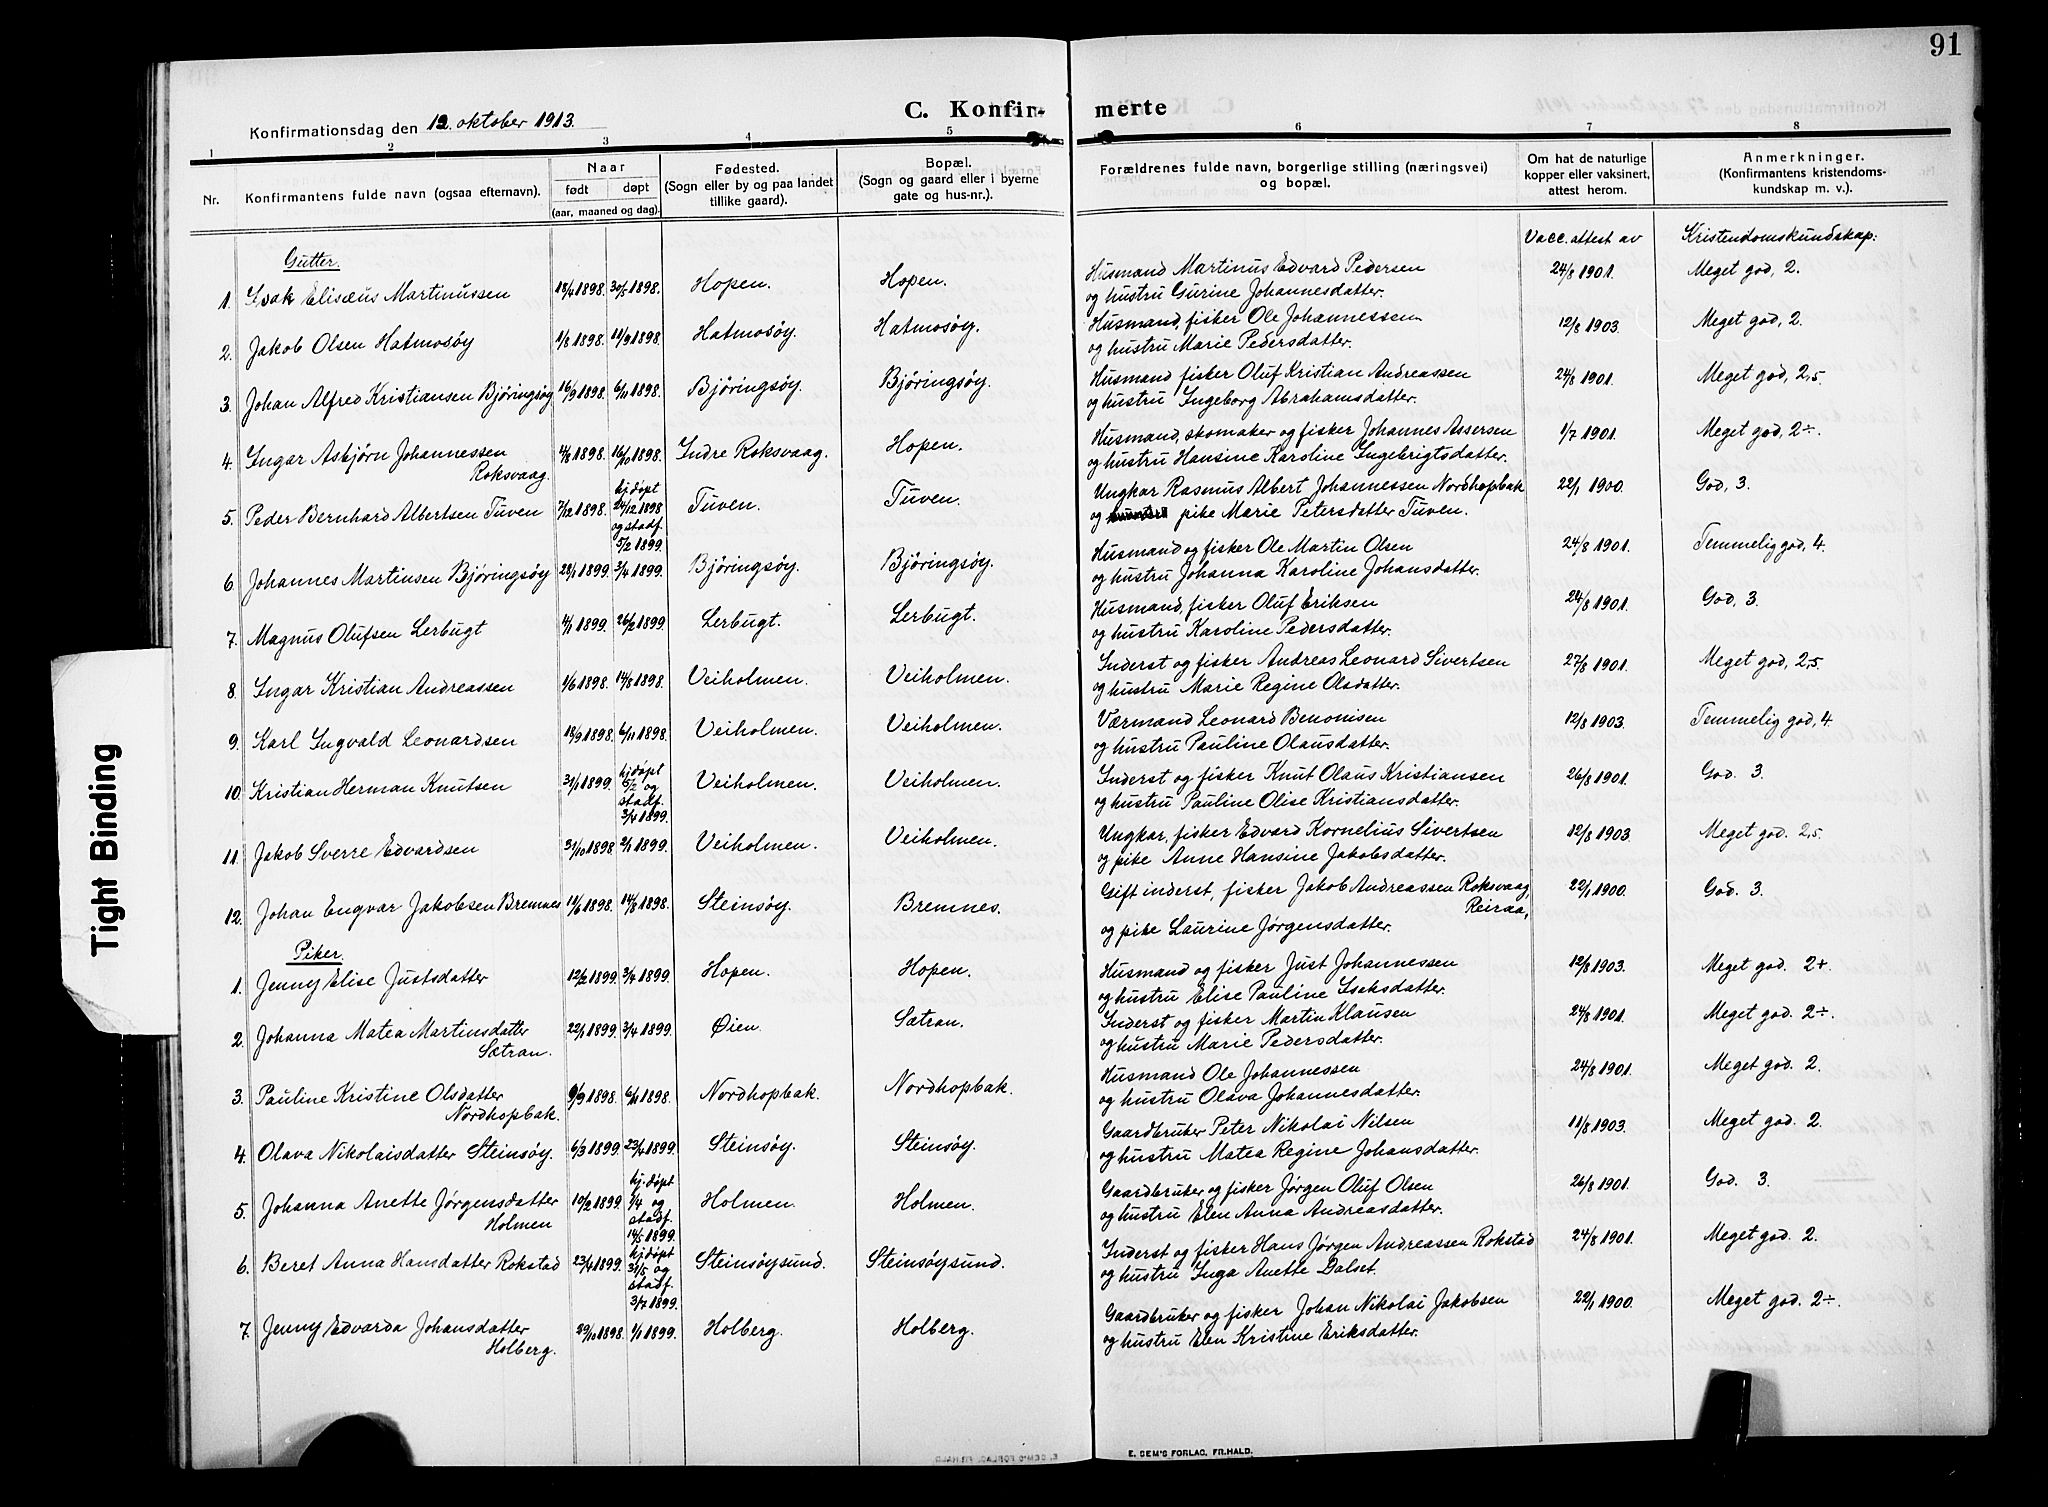 91
C. Konfir- merte
Konfirmationsdag den 12. oktober 1913.
1 2 3 4 5 6 7 8
Nr. Konfirmantens fulde navn (ogsaa efternavn). Naar født døpt (aar, maaned og dag). Fødested. (Sogn eller by og paa landet tillike gaard). Bopæl. (Sogn og gaard eller i byerne gate og hus-nr.). Forældrenes fulde navn, borgerlige stilling (næringsvei) og bopæl. Om hat de naturlige kopper eller vaksinert, attest herom. Anmerkninger. (Konfirmantens kristendoms-kundskap m. v.).
Gutter. Vacc. attest av Kristendomskundskap:
1. Isak Elisæus Martinussen 18/4 1898. 30/5 1898. Hopen. Hopen. Husmand Martinus Edvard Pedersen 24/8 1901. Meget god, 2.
og hustru Gurine Johannesdatter.
2. Jakob Olsen Hatmosøy 1/8 1898. 11/9 1898. Hatmosøy. Hatmosøy. Husmand, fisker Ole Johannessen 12/8 1903. Meget god, 2.
og hustru Marie Pedersdatter.
3. Johan Alfred Kristiansen Bjøringsøy 16/9 1898. 6/11 1898. Bjøringsøy. Bjøringsøy. Husmand fisker Oluf Kristian Andreassen 24/8 1901. Meget god, 2,5.
og hustru Ingeborg Abrahamsdatter.
4. Ingar Asbjørn Johannessen 1898. 16/10 1898. Indre Roksvaag. Hopen. Husmand, skomaker og fisker Johannes Assersen 1/7 1901. Meget god, 2÷.
Roksvaag. og hustru Hansine Karoline Ingebrigtsdatter.
5. Peder Bernhard Albertsen Tuven 7/12 1898. hj.døpt 24/12 1898 og stadf. 5/2 1899. Tuven. Tuven. Ungkar Rasmus Albert Johannessen Nordhopbak 22/1 1900. God, 3.
og pike Marie Petersdatter Tuven.
6. Johannes Martinsen Bjøringsøy 28/1 1899. 3/4 1899. Bjøringsøy. Bjøringsøy. Husmand og fisker Ole Martin Olsen 24/8 1901. Temmelig god, 4.
og hustru Johanna Karoline Johansdatter.
7. Magnus Olufsen Lerbugt 1899. 26/2 1899. Lerbugt. Lerbugt. Husmand, fisker Oluf Eriksen 24/8 1901. God, 3.
og hustru Karoline Pedersdatter.
8. Ingar Kristian Andreassen 1/6 1898. 14/8 1898. Veiholmen. Veiholmen. Inderst og fisker Andreas Leonard Sivertsen 27/8 1901. Meget god, 2,5.
og hustru Marie Regine Olsdatter.
9. Karl Ingvald Leonardsen 18/9 1898. 6/11 1898. Veiholmen. Veiholmen. Værmand Leonard Benonisen 12/8 1903. Temmelig god, 4.
og hustru Pauline Olausdatter.
10. Kristian Herman Knutsen 31/1 1899. hj.døpt 5/2 og stadf. 3/4 1899. Veiholmen. Veiholmen. Inderst og fisker Knut Olaus Kristiansen 26/8 1901. God. 3.
og hustru Pauline Olise Kristiansdatter.
11. Jakob Sverre Edvardsen 31/10 1898. 2/1 1899. Veiholmen. Veiholmen. Ungkar, fisker Edvard Kornelius Sivertsen 12/8 1903. Meget god. 2,5
og pike Anne Hansine Jakobsdatter.
12. Johan Engvar Jakobsen Bremnes 11/6 1898. 14/8 1898. Steinsøy. Bremnes. Gift inderst, fisker Jakob Andreassen Roksvaag, 22/1 1900. God. 3.
Reiraa,
og pike Laurine Jørgensdatter.
Piker.
1. Jenny Elise Justsdatter 12/2 1899. 3/4 1899. Hopen. Hopen. Husmand og fisker Just Johannessen 12/8 1903. Meget god. 2+.
og hustru Elise Pauline Isaksdatter.
2. Johanna Matea Martinsdatter 22/1 1899. 3/4 1899. Øien. Sætran. Inderst og fisker Martin Klausen 24/8 1901. Meget god. 2÷.
Sætran. og hustru Marie Pedersdatter.
3. Pauline Kristine Olsdatter 9/9 1898. 6/11 1898. Nordhopbak. Nordhopbak. Husmand Ole Johannessen 24/8 1901. Meget god. 2.
Nordhopbak. og hustru Olava Johannesdatter.
4. Olava Nikolaisdatter Steinsøy. 6/3 1899. 23/4 1899. Steinsøy. Steinsøy. Gaardbruker Peter Nikolai Nilsen 11/8 1903. Meget god. 2.
og hustru Matea Regine Johansdatter.
5. Johanna Anette Jørgensdatter 10/2 1899. hj.døpt og stadf. 14/5 1899. Holmen. Holmen. Gaardbruker og fisker Jørgen Oluf Olsen 26/8 1901. God. 3.
Holmen og hustru Elen Anna Andreasdatter.
6. Beret Anna Hansdatter Rokstad 23/4 1899. hj.døpt 31/5 og stadf. 3/7 1899. Steinsøysund. Steinsøysund. Inderst og fisker Hans Jørgen Andreassen Rokstad 24/8 1901. Meget god. 2.
og hustru Inga Anette Dalset.
7. Jenny Edvarda Johansdatter 29/10 1898. 1/1 1899. Holberg. Holberg. Gaardbruker og fisker Johan Nikolai Jakobsen 22/1 1900. Meget god. 2÷.
Holberg. og hustru Elen Kristine Eriksdatter.
E. SEM'S FORLAG, FR.HALD.
Tight Binding